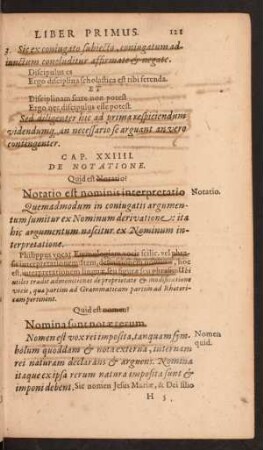 LIBER PRIMUS. 121
3. Sic ex coniugato subiecto, coniugatum ad-
iunctum concluditur affirmatè & negatè.
Discipulus es
Ergo disciplina scholastica est tibi ferenda.
ET
Disciplinam ferre non potest
Ergo nec discipulus esse potest.
Sed diligenter hic ad prima respiciendum
videndumq, an necessario se arguant an verò
contingenter.
CAP. XXIIII.
DE NOTATIONE.
Quid est Notatio?
Notatio est nominis interpretatio Notatio.
Quemadmodum in coniugatis argumen-
tum sumitur ex Nominum derivatione: ita
hic argumentum nascitur ex Nominum in-
terpretatione.
Philippus vocat vocis scilic. vel phra-
hoc
est, interpretationem
utiles tradit admonitiones de proprietate & modificatione
vocis, qua partim ad Grammaticam partim ad Rhetori-
cam pertinent.
Quid est nomen?
Nomina sunt notæ rerum.
Nomen est vox rei imposita, tanquam sym- Nomen
bolum quoddam & nota externa, internam quid.
rei naturam declarans & arguens. Nomina
itaque ex ipsa rerum natura imposita sunt &
imponi debent, Sic nomen Jesus Mariæ, & Dei filio
H 5